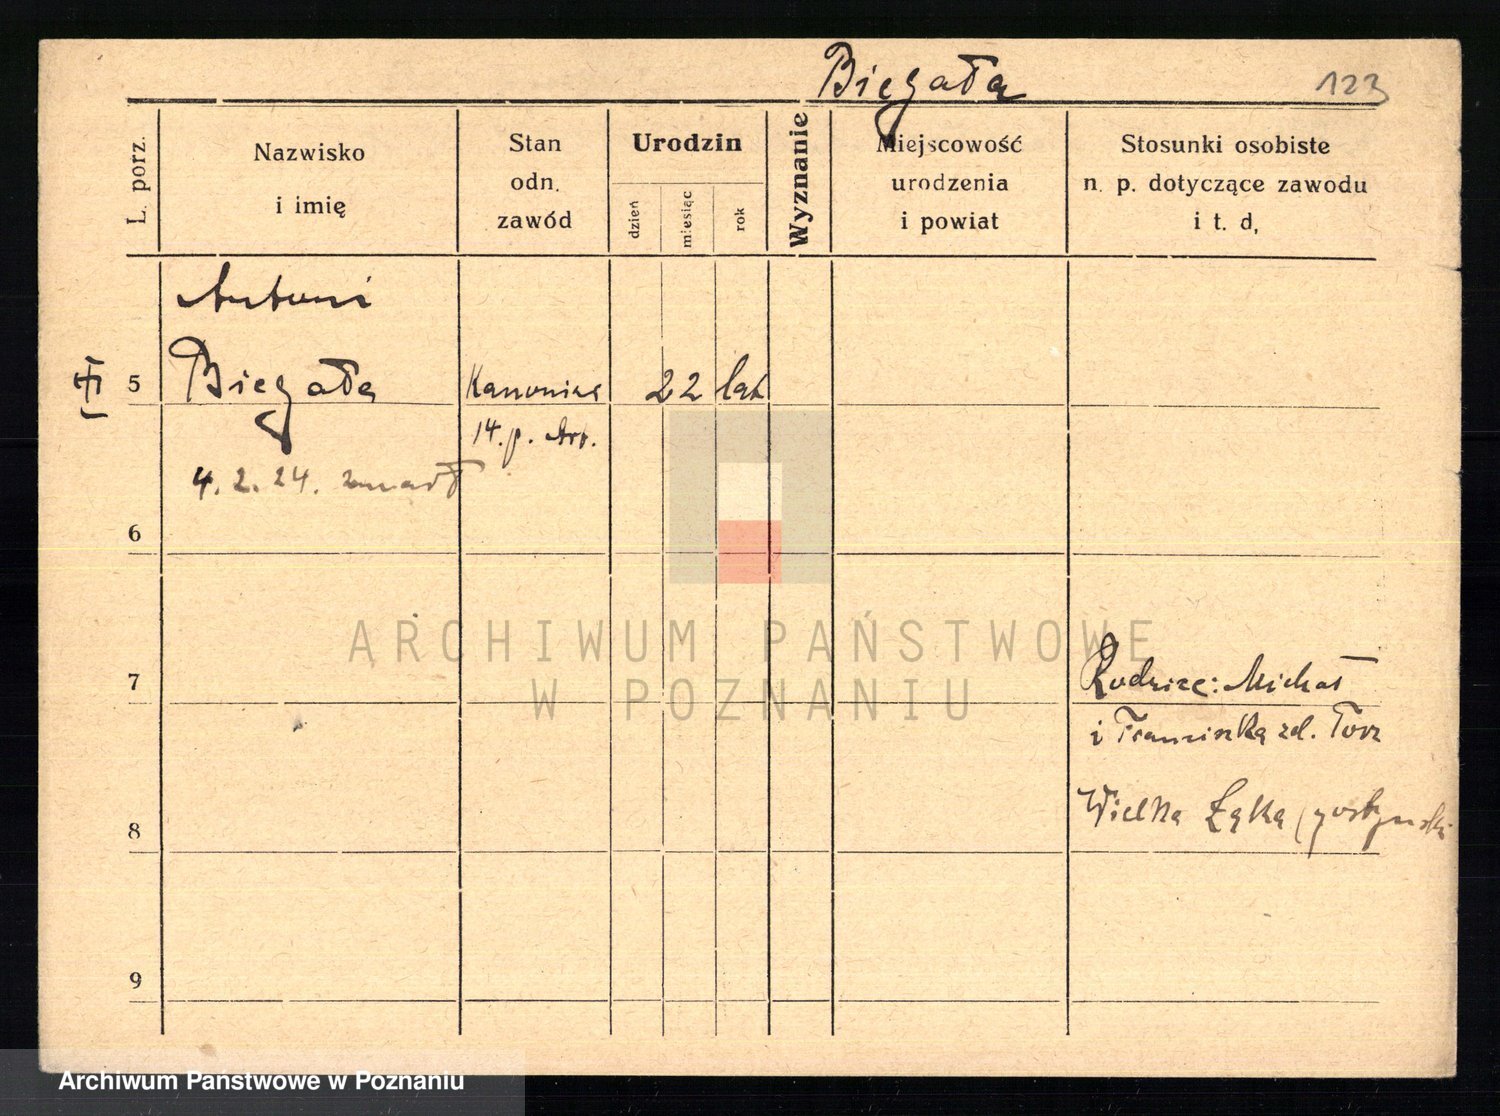 Biegała
123
L. porz.
Nazwisko
i imię
Stan
odn.
zawód
Urodzin
dzień
miesiąc
rok
Wyznanie
Miejscowość
urodzenia
i powiat
Stosunki osobiste
n. p. dotyczące zawodu
i t. d.
Antoni
5
Biegała
Kanonier
22 lat
14. p. Art.
4. 2. 24. zmarł
6
7
Rodzice: Michał
i Franciszka zd. Torz
8
Wielka Łąka (gostyński
9
ARCHIWUM PAŃSTWOWE
W POZNANIU
Archiwum Państwowe w Poznaniu